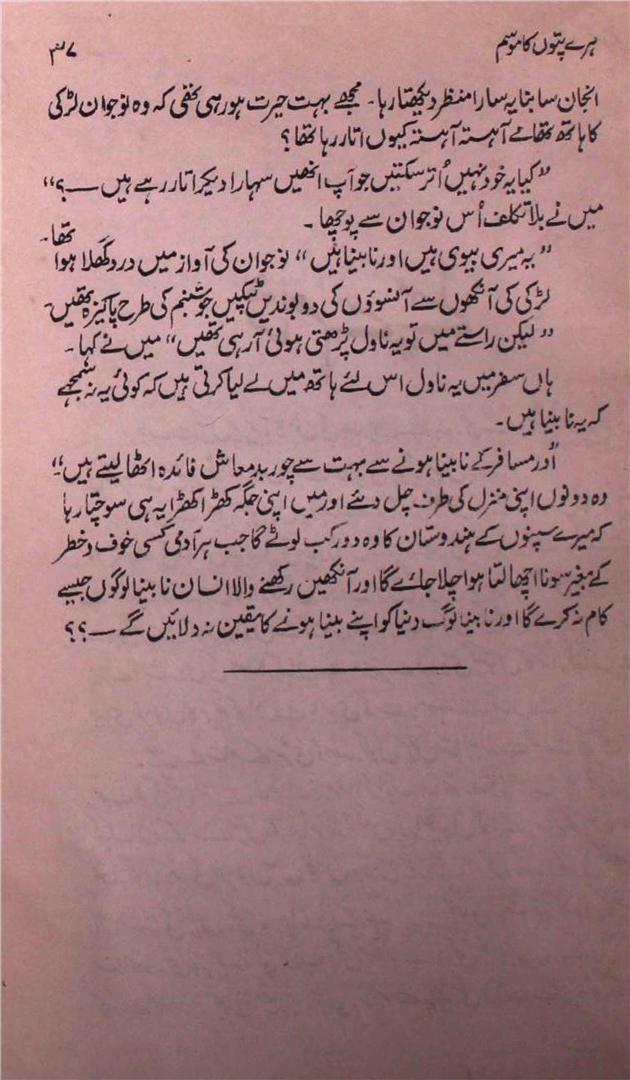 ہرے پتوں کا موسم
۳۷
انجان سا بنا یہ سارا منظر دیکھتا رہا۔ مجھے بہت حیرت ہو رہی تھی کہ وہ نوجوان لڑکی
کا ہاتھ تھامے آہستہ آہستہ کیوں اتار رہا تھا؟
”کیا یہ خود نہیں اُتر سکتیں جو آپ انھیں سہارا دیکر اتار رہے ہیں ــ؟“
میں نے بلا تکلف اُس نوجوان سے پوچھا۔
”یہ میری بیوی ہیں اور نابینا ہیں“ نوجوان کی آواز میں درد گھلا ہوا تھا۔
لڑکی کی آنکھوں سے آنسوؤں کی دو بوندیں ٹپکیں جو شبنم کی طرح پاکیزہ تھیں۔
”لیکن راستے میں تو یہ ناول پڑھتی ہوئی آرہی تھیں“ میں نے کہا۔
ہاں سفر میں یہ ناول اس لئے ہاتھ میں لے لیا کرتی ہیں کہ کوئی یہ نہ سمجھے
کہ یہ نابینا ہیں۔
اور مسافر کے نابینا ہونے سے بہت سے چور بدمعاش فائدہ اٹھا لیتے ہیں۔“
وہ دونوں اپنی منزل کی طرف چل دئے اور میں اپنی جگہ کھڑا کھڑا یہ ہی سوچتا رہا
کہ میرے سپنوں کے ہندوستان کا وہ دور کب لوٹے گا جب ہر آدمی کسی خوف و خطر
کے بغیر سونا اچھالتا ہوا چلا جائے گا اور آنکھیں رکھنے والا انسان نابینا لوگوں جیسے
کام نہ کرے گا اور نابینا لوگ دنیا کو اپنے بینا ہونے کا یقین نہ دلائیں گے ــ؟؟